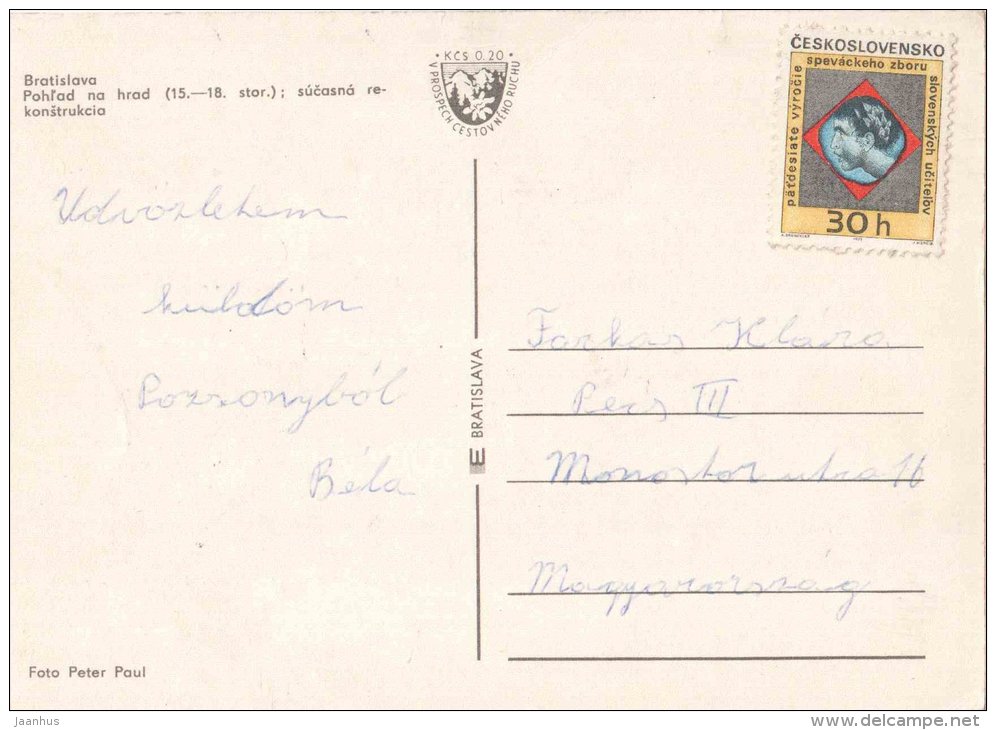 Bratislava
Pohľad na hrad (15.—18. stor.); súčasná re-
konštrukcia
KCS 0.20
V PROSPECH CESTOVNÉHO RUCHU
ČESKOSLOVENSKO
päťdesiate vyročie
speváckeho zboru
slovenských učiteľov
30 h
Udvözletem
küldöm
Pozsonyból
Béla
E BRATISLAVA
Farkas Klára
Pécs III
Monostor utca 16
Magyarország
Foto Peter Paul
Jaanhus
delcampe.net